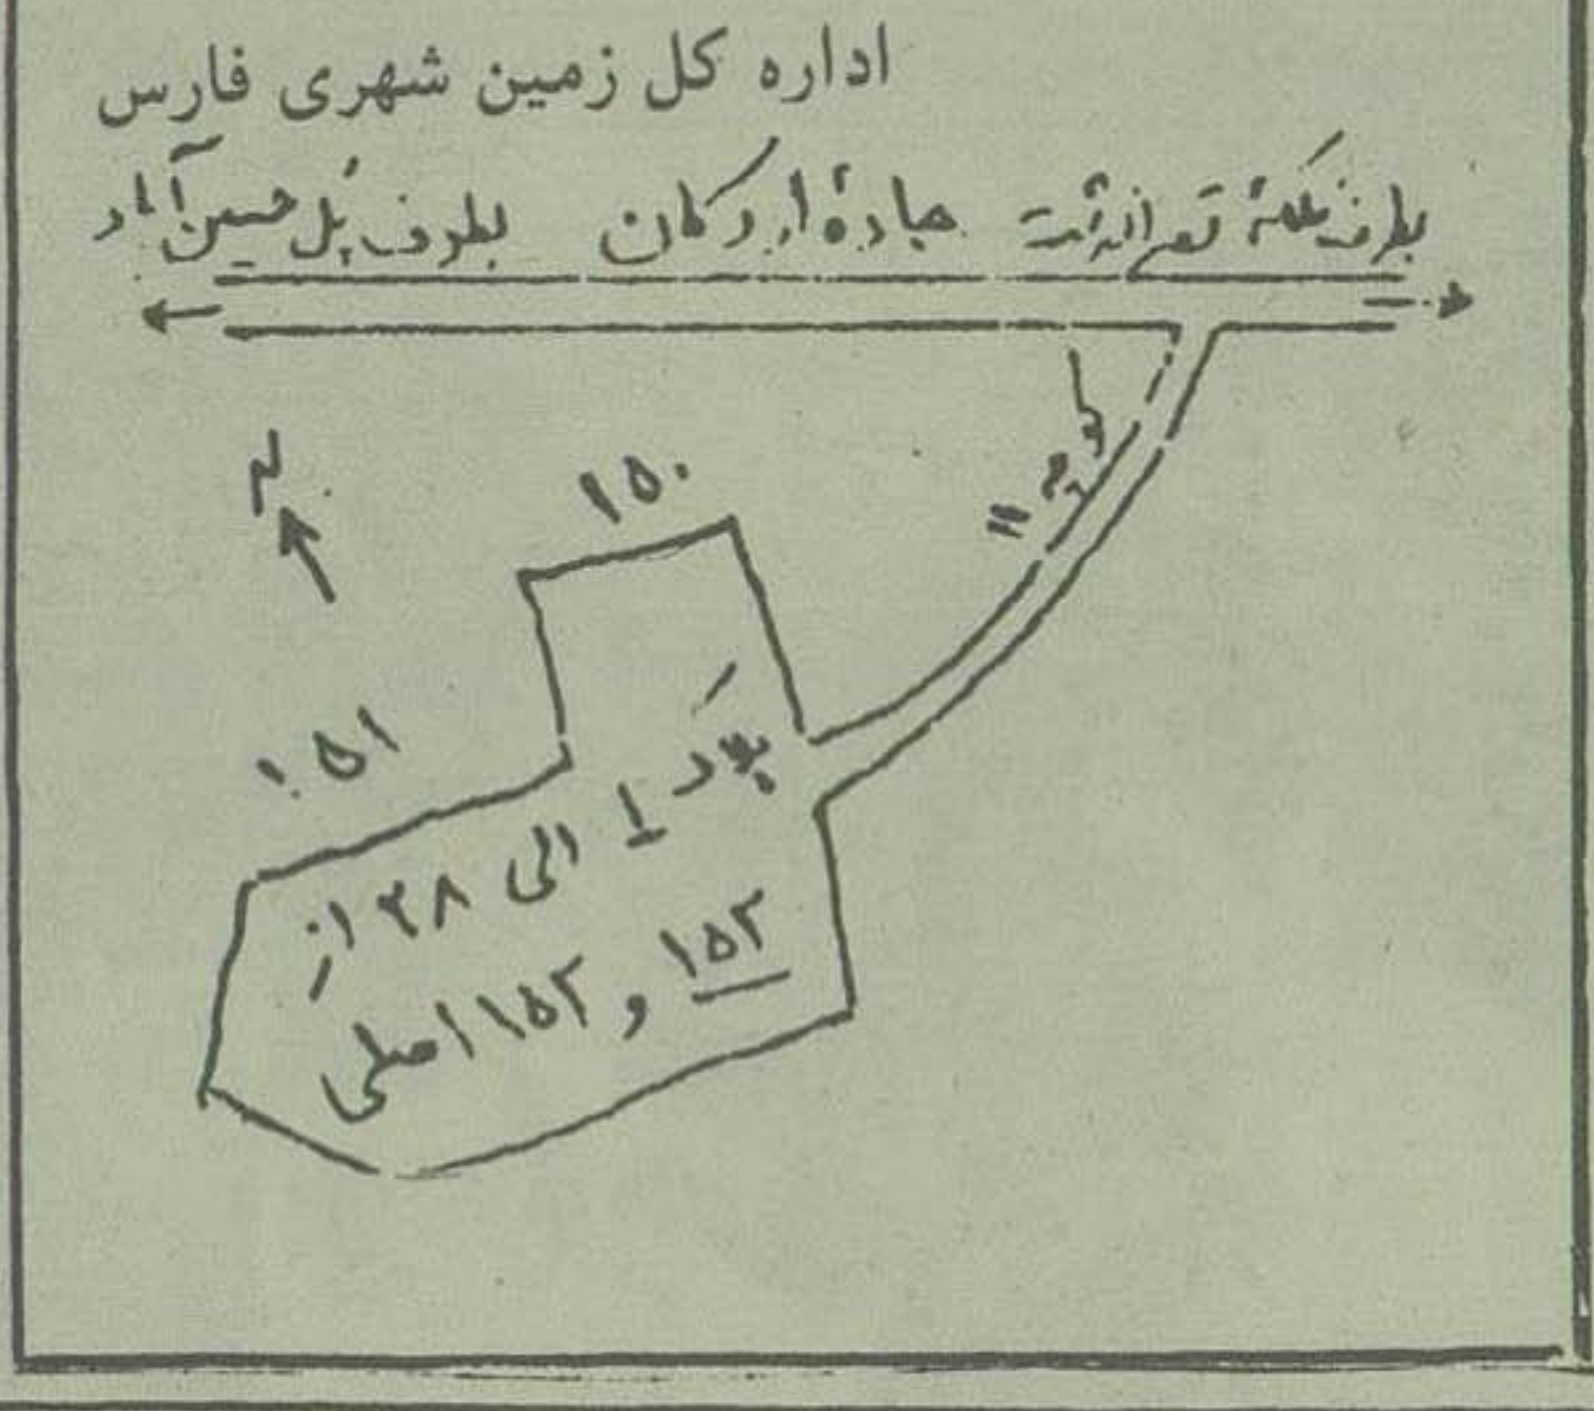 اداره کل زمین شهری فارس
بطرف فلکهٔ قصرالدشت جادهٔ اردکان بطرف پُل حسین آباد
کوچه ۱۱
۱۵۰
۱۵۱
پلاک ۱ الی ۲۸ از
۱۵۲ و ۱۵۲ اصلی